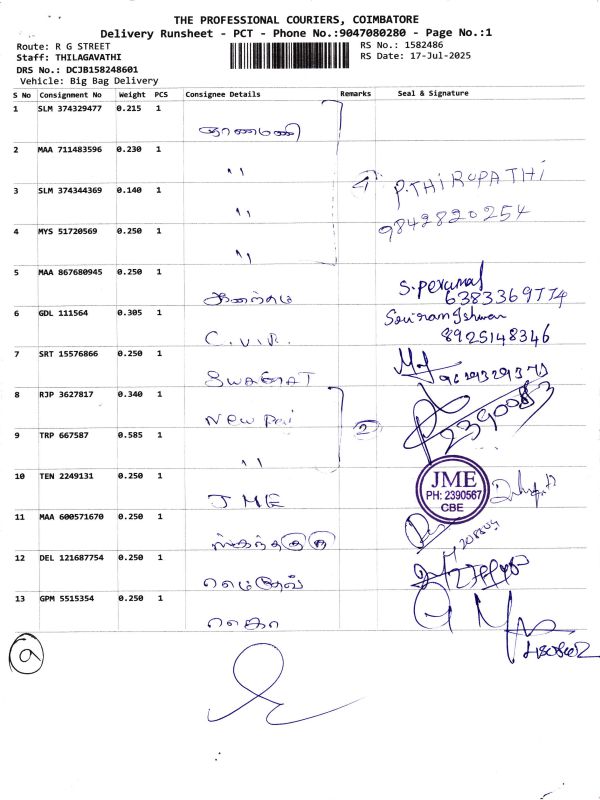 THE PROFESSIONAL COURIERS, COIMBATORE
Delivery Runsheet - PCT - Phone No.:9047080280 - Page No.:1
Route: R G STREET
Staff: THILAGAVATHI
DRS No.: DCJB158248601
Vehicle: Big Bag Delivery
RS No.: 1582486
RS Date: 17-Jul-2025
S No Consignment No Weight PCS Consignee Details Remarks Seal & Signature
1 SLM 374329477 0.215 1
2 MAA 711483596 0.230 1 ''
3 SLM 374344369 0.140 1 ''
4 MYS 51720569 0.250 1 ''
P.THIRUPATHI
9842820254
5 MAA 867680945 0.250 1 S.perumal
6383369774
6 GDL 111564 0.305 1 C.V.R.
8925148346
7 SRT 15576866 0.250 1 SWAGAT
8 RJP 3627817 0.340 1 New
2390083
9 TRP 667587 0.585 1 ''
10 TEN 2249131 0.250 1 JME
JME
PH: 2390567
CBE
11 MAA 600571670 0.250 1
12 DEL 121687754 0.250 1
13 GPM 5515354 0.250 1